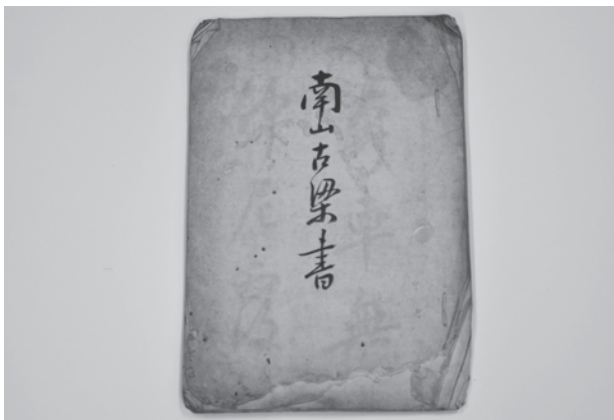 南山古梁書